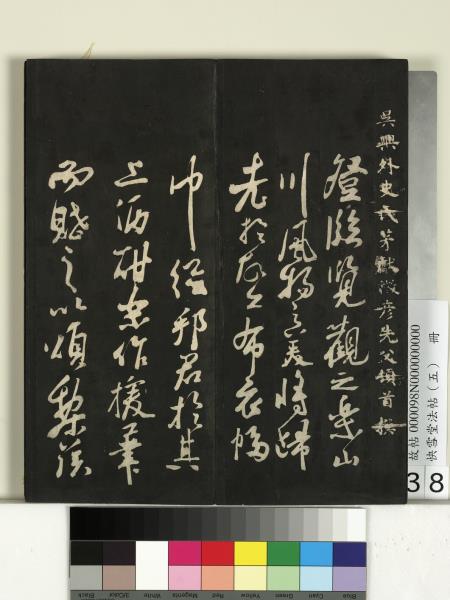 吳興外史 茅獻徵彥先父頓首撰
登臨覽觀之樂山
川風物之美將歸
老於故丘布衣幅
巾從邦君於其
上酒酣樂作援筆
而賦之以頌黎侯
故帖 000098N000000000
快雪堂法帖（五） 冊
38
Black
3/Color
White
Magenta
Red
Yellow
Green
Cyan
Blue